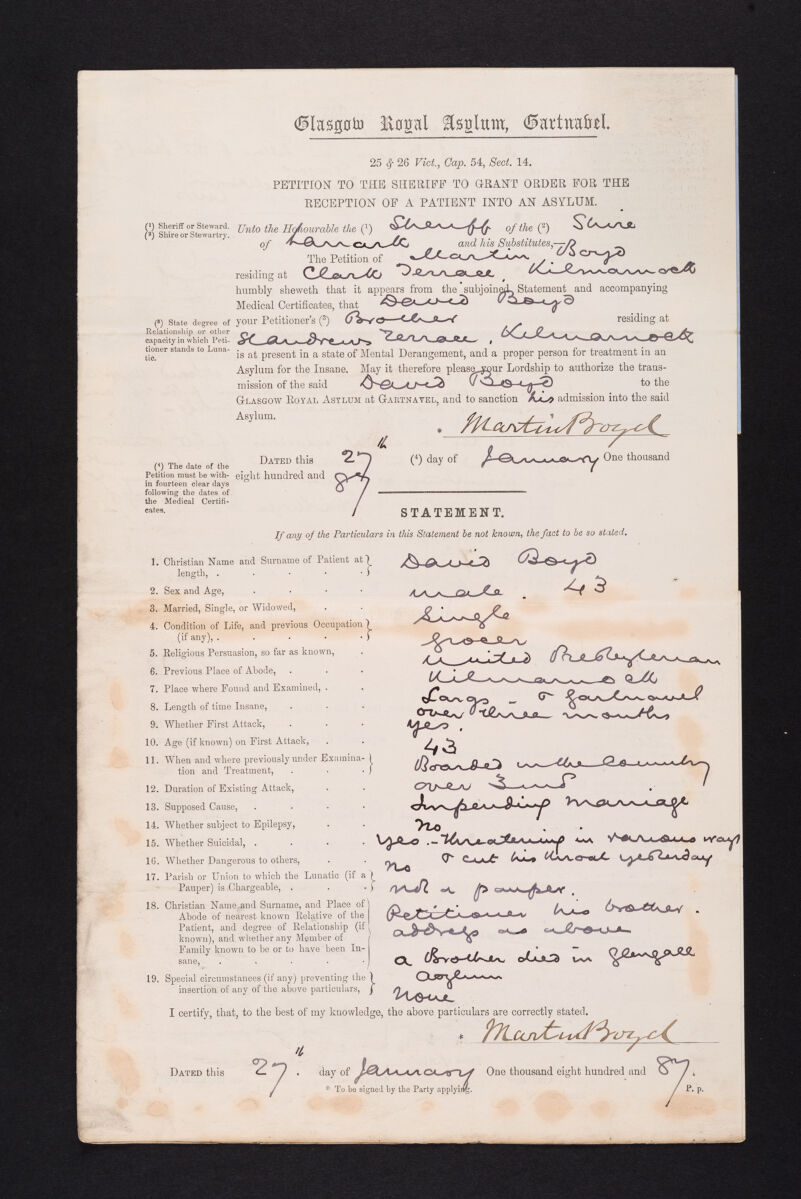 Glasgow Royal Asylum, Gartnabel.
25 & 26 Vict., Cap. 54, Sect. 14.
PETITION TO THE SHERIFF TO GRANT ORDER FOR THE
RECEPTION OF A PATIENT INTO AN ASYLUM.
(1) Sheriff or Steward.
(2) Shire or Stewartry.
Unto the Honourable the (1) Sheriff of the (2) Shire
of Lanark and his Substitutes,—
The Petition of Martin Boyd
residing at Clark Terrace, Kilmarnock
humbly sheweth that it appears from the subjoined Statement and accompanying
Medical Certificates, that David Boyd
(3) State degree of
Relationship or other
capacity in which Peti-
tioner stands to Luna-
tic.
your Petitioner's (3) Brother residing at
St Andrews Terrace, Kilmarnock
is at present in a state of Mental Derangement, and a proper person for treatment in an
Asylum for the Insane. May it therefore please your Lordship to authorize the trans-
mission of the said David Boyd to the
GLASGOW ROYAL ASYLUM at GARTNAVEL, and to sanction his admission into the said
Asylum.
* Martin Boyd
(4) The date of the
Petition must be with-
in fourteen clear days
following the dates of
the Medical Certifi-
cates.
DATED this 27th (4) day of January One thousand
eight hundred and 87
STATEMENT.
If any of the Particulars in this Statement be not known, the fact to be so stated.
1. Christian Name and Surname of Patient at
length, . . . . . David Boyd
2. Sex and Age, . . . . male. 43
3. Married, Single, or Widowed, . . Single
4. Condition of Life, and previous Occupation
(if any), . . . . . . grocer
5. Religious Persuasion, so far as known, . United Presbyterian
6. Previous Place of Abode, . . . Kilmarnock
7. Place where Found and Examined, . . Largs - & Gartnavel
8. Length of time Insane, . . . over three months
9. Whether First Attack, . . . yes.
10. Age (if known) on First Attack, . . 43
11. When and where previously under Examina-
tion and Treatment, . . . Boarded in the Country
12. Duration of Existing Attack, . . over 3 mos
13. Supposed Cause, . . . . Impending marriage
14. Whether subject to Epilepsy, . . no
15. Whether Suicidal, . . . . yes - threatening in various ways
& cut his throat yesterday
16. Whether Dangerous to others, . . no
17. Parish or Union to which the Lunatic (if a
Pauper) is Chargeable, . . . not a pauper.
18. Christian Name and Surname, and Place of
Abode of nearest known Relative of the
Patient, and degree of Relationship (if
known), and whether any Member of
Family known to be or to have been In-
sane, . . . . . .
Petitioner his brother.
address as above
a Brother died in Glengall
Asylum
19. Special circumstances (if any) preventing the
insertion of any of the above particulars, None
I certify, that, to the best of my knowledge, the above particulars are correctly stated.
* Martin Boyd
DATED this 27th. day of January One thousand eight hundred and 87.
* To be signed by the Party applying.
P. p.